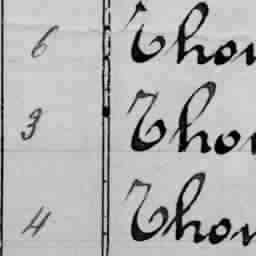 6 Thom
3 Thom
4 Thom